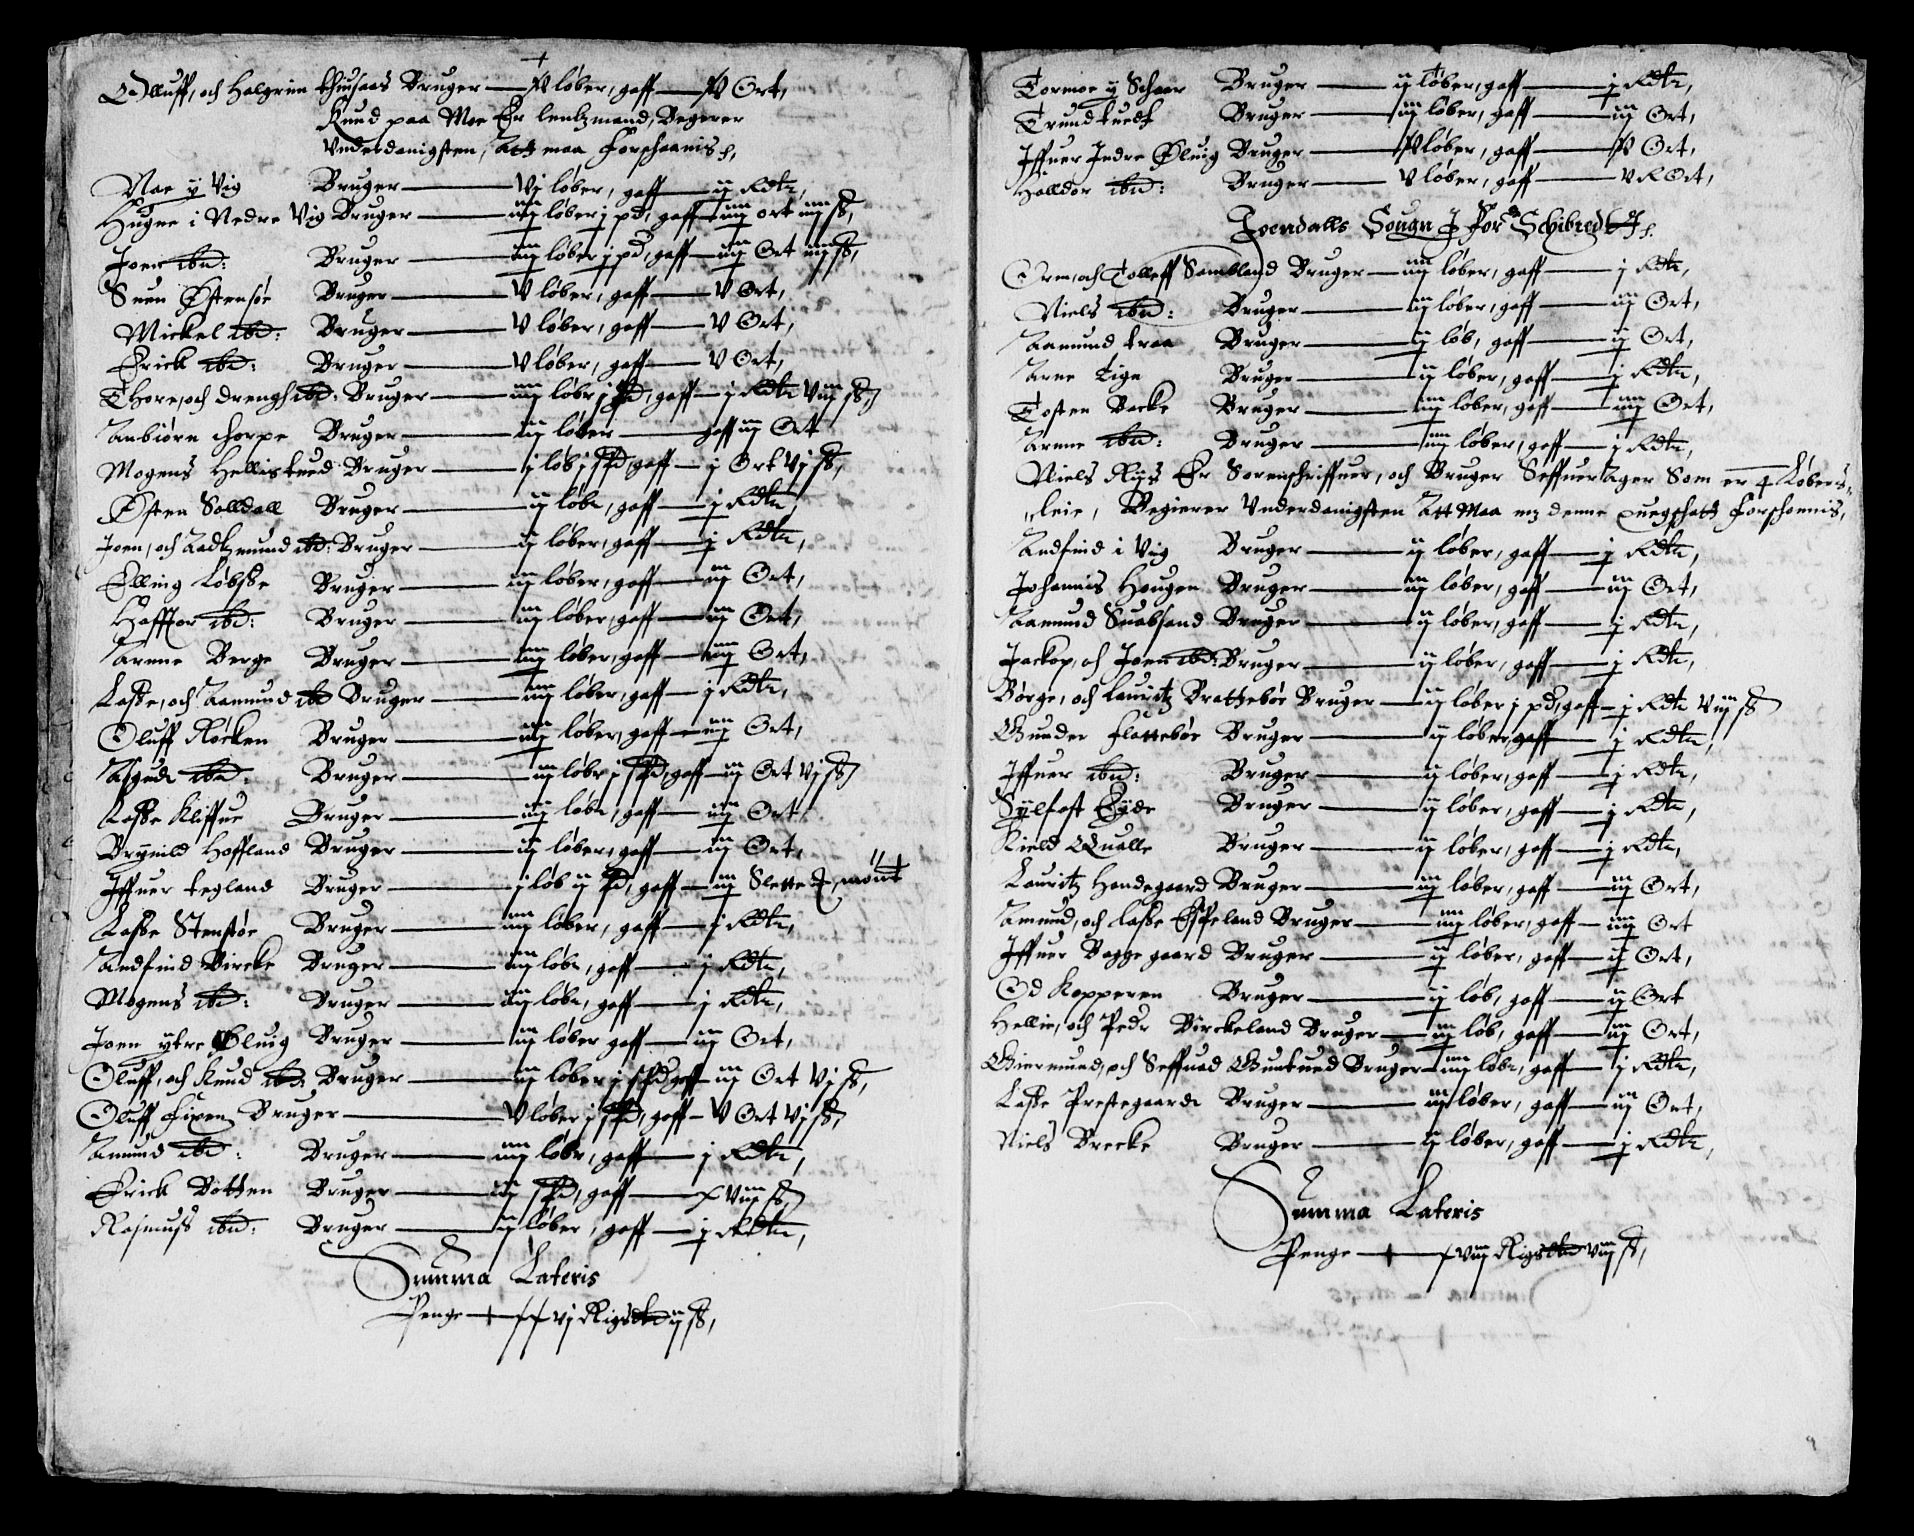 Olluff, och Halgrim Bruger — løber, gaff — Ort,
Knud paa Moe Er lentzmand, Begerer
Vnderdanigsten, Att maa Forschaanis,
Vig Bruger — vj løber, gaff — ij Rdlr,
Hugne i Nedre Vig Bruger — iiij løber j pd, gaff — iiij ort iiij ß,
Joen ibd: Bruger — iiij løber j pd, gaff — iiij Ort iiij ß,
Suen Østensøe Bruger — V løber, gaff — V Ort,
Mickel ibd: Bruger — V løber, gaff — V Ort,
Erick ibd: Bruger — V løber, gaff — V Ort,
Thore, och Drengh ibd: Bruger — iiij løbr j pd, gaff — j Rdlr viij ß,
Anbiørn thorpe Bruger — iij løber — gaff iij Ort
Mogens Hellistued Bruger — j løb j pd, gaff — j Ort vj ß,
Østen Solldall Bruger — ij løbe, gaff — j Rdlr,
Joen, och Aadtzmund ibd: Bruger — ij løber, gaff — j Rdlr,
Elling Løbsße Bruger — iij løber, gaff — iij Ort,
Hafftor ibd: Bruger — iij løber, gaff — iij Ort,
Arnne Berge Bruger — iiij løber, gaff — iiij Ort,
Laße, och Aamund ibd Bruger — iiij løber, gaff — j Rdlr,
Oluff Røcken Bruger — iiij løber, gaff — iiij Ort,
Asgude ibd: Bruger — iij løbr j pd, gaff — iij Ort vj ß,
Laße Kliffue Bruger — iiij løbe, gaff — iiij Ort
Brynild Hoffland Bruger — iij løber, gaff — iij Ort,
Iffuer tegland Bruger — j løb ij pd, gaff — iij Slette mønt
Laße Stenstøe Bruger — iiij løber, gaff — j Rdlr,
Andfind Bircke Bruger — iiij løbe, gaff — j Rdlr,
Mogens ibd: Bruger — iiij løbe, gaff — j Rdlr,
Joen ytre Øluig Bruger — iij løber gaff — iij Ort,
Oluff, och Knud ibd: Bruger — iij løber j pd gaff — iij Ort vj ß,
Oluff Fixen Bruger — V løber j pd, gaff — V Ort vj ß,
Amund ibd: Bruger — iiij løbr, gaff — j Rdlr,
Erick Botten Bruger — ij pd, gaff — xviij ß,
Rasmuss ibd: Bruger — ij løber, gaff — j Rdlr,
Summa Lateris
Penge — xxvj Rigsdlr ij ß,
Tormoe y Schaar Bruger — ij løber, gaff — j Rdlr,
Trundtuedt Bruger — iij løber, gaff — iij Ort,
Iffuer Indre Øluig Bruger — løber, gaff — Ort,
Halldor ibd: Bruger — V løber, gaff — V Ort,
Joendalls Sougn Schibred
Orm, och Tolleff Sambland Bruger — iiij løber, gaff — j Rdlr,
Niels ibd: Bruger — iij løber, gaff — iij Ort,
Aamund traa Bruger — ij løb, gaff — ij Ort,
Arne Lign Bruger — ij løber, gaff — j Rdlr,
Tosten Backe Bruger — iiij løber, gaff — iiij Ort,
Arnne ibd: Bruger — iiij løber, gaff — j Rdlr,
Niels Riis Er Sorenschriffuer, och Bruger Seffuerager Som er 4 Løbers
leie, Begierer Vnderdanigsten Att Maa mz denne Forschonnis,
Andfind i Viig Bruger — ij løber, gaff — j Rdlr,
Johannis Hougen Bruger — iij løber, gaff — iij Ort,
Aamund Suabsand Bruger — ij løber, gaff — j Rdlr,
Jackop, och Joen ibd: Bruger — ij løber, gaff — j Rdlr,
Børge, och Lauritz Brattebøe Bruger — ij løber j pd, gaff — j Rdlr viij ß
Gunder Flattebøe Bruger — ij løber, gaff — j Rdlr,
Iffuer ibd: Bruger — ij løber, gaff — j Rdlr,
Syelfast Eyde Bruger — ij løber, gaff — j Rdlr,
Kield Qualle Bruger — ij løber, gaff — j Rdlr,
Lauritz Handegaard Bruger — iij løber, gaff — iij Ort,
Amund, och Laße Espeland Bruger — iiij løber, gaff — iiij Ort
Iffuer Baggegaard Bruger — ij løber, gaff — ij Ort,
Od Kopperen Bruger — ij løb, gaff — ij Ort
Hellie, och Pedr Birckeland Bruger — iij løb, gaff — iij Ort,
Giermund, och Seffuad Guntued Bruger — iiij løbe, gaff — j Rdlr,
Laße Prestegaarde Bruger — iij løber, gaff — iij Ort,
Niels Brecke Bruger — ij løber, gaff — j Rdlr,
Summa Lateris
Penge — xviij Rigsdlr viij ß,